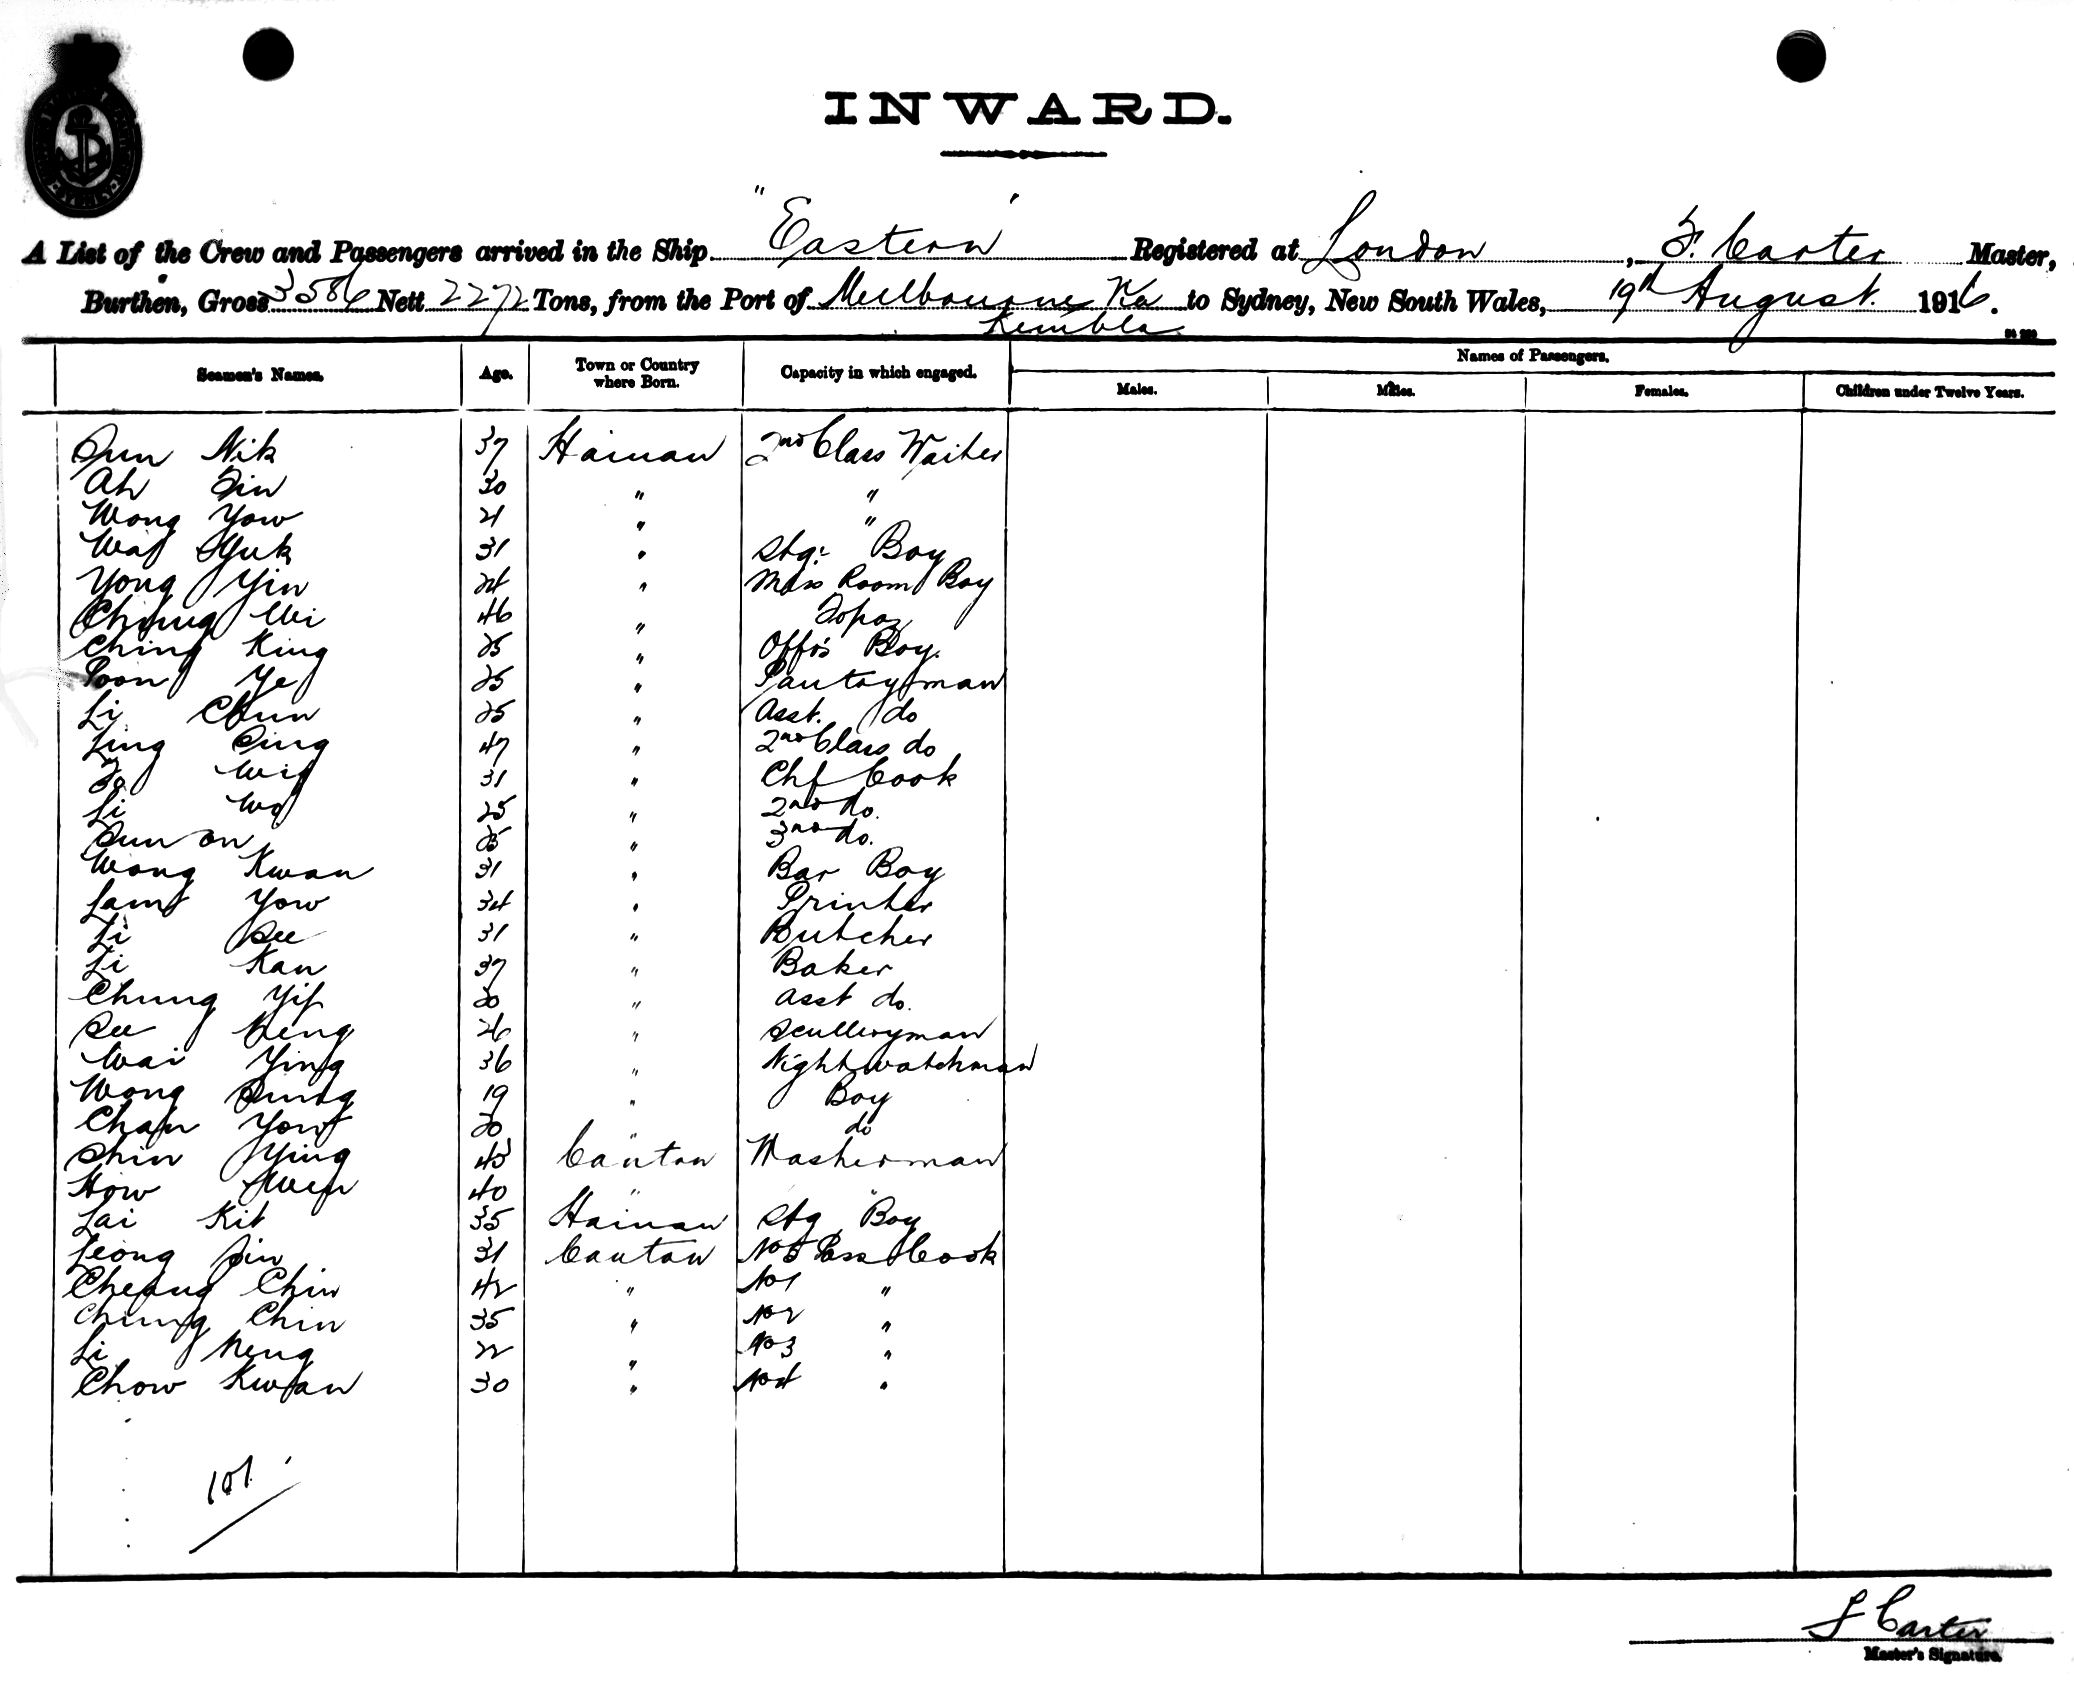 INWARD.
A List of the Crew and Passengers arrived in the Ship "Eastern" Registered at London, F. Carter Master,
Burthen, Gross 3586 Nett 2272 Tons, from the Port of Melbourne Via to Sydney, New South Wales, 19th August. 1916.
Kembla
Names of Passengers.
Seamen's Names. Age. Town or Country where Born. Capacity in which engaged. Males. Males. Females. Children under Twelve Years.
Sun Nik 37 Hainan 2nd Class Waiter
Ah Sin 30 " "
Wong Yow 21 " "
Waf Yuk 31 " Stg: Boy
Yong Yin 24 " Mess Room Boy
Chung Wi 46 " Topaz
Ching King 25 " Off's Boy.
Poon Ye 25 " Pantryman
Li Chun 25 " Asst. do
Ling Sing 47 " 2nd Class do
31 " Chf Cook
Li Wo 25 " 2nd do.
Sun on 25 " 3rd do.
Wong Kwan 31 " Bar Boy
Lam Yow 34 " Printer
Li See 31 " Butcher
Li Kan 37 " Baker
Chung Yip 20 " Asst do.
See Neng 26 " Sculleryman
Wai Ying 36 " Nightwatchman
Wong Sung 19 " Boy
Chan Yow 20 " do
Shin Ying 43 Canton Washerman
How 40 " "
Lai Kit 35 Hainan Stg Boy
Leong 31 Canton No 5 Pass Cook
Cheang Chin 42 " No 1 "
Chung Chin 35 " No 2 "
Li Neng 22 " No 3 "
Chow Kwan 30 " No 4 "
101
F Carter
Master's Signature.